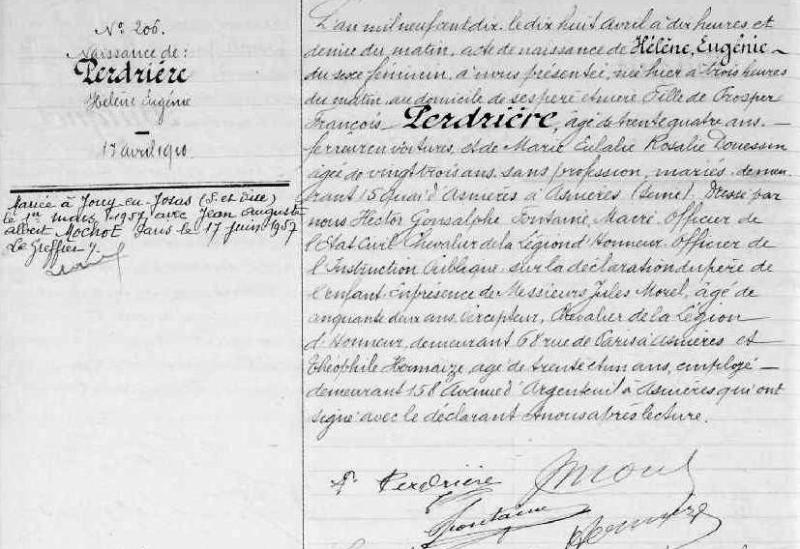 N° 206.
Naissance de:
Perdrière
Hélène Eugénie
17 avril 1910
Mariée à Jouy-en-Josas (S. et Oise)
le 1er mars 1957 avec Jean Auguste
Albert Mochot Paris le 17 juin 1957
Le Greffier
L'an mil neuf cent dix, le dix huit avril à dix heures et
demie du matin, acte de naissance de Hélène, Eugénie
du sexe féminin, à nous présentée, née hier à trois heures
du matin, au domicile de ses père et mère Fille de Prosper
François Perdrière, âgé de trente quatre ans.
ferreur en voitures, et de Marie Eulalie Rosalie Douessin
âgée de vingt trois ans, sans profession, mariés, demeu
rant 15 quai d'Asnières à Asnières (Seine). Dressé par
nous Hector Gonsalphe Fontaine, Maire, Officier de
l'Etat Civil Chevalier de la Légion d'Honneur. Officier de
l'Instruction Publique, sur la déclaration du père de
l'enfant En présence de Messieurs Jules Morel, âgé de
cinquante deux ans, Percepteur, Chevalier de la Légion
d'Honneur, demeurant 68 rue de Paris à Asnières et
Théophile Hermaize, agé de trente et un ans, employé
demeurant 158 Avenue d'Argenteuil à Asnières qui ont
signé avec le déclarant et nous après lecture.
Perdrière
Morel
Fontaine
Hermaize